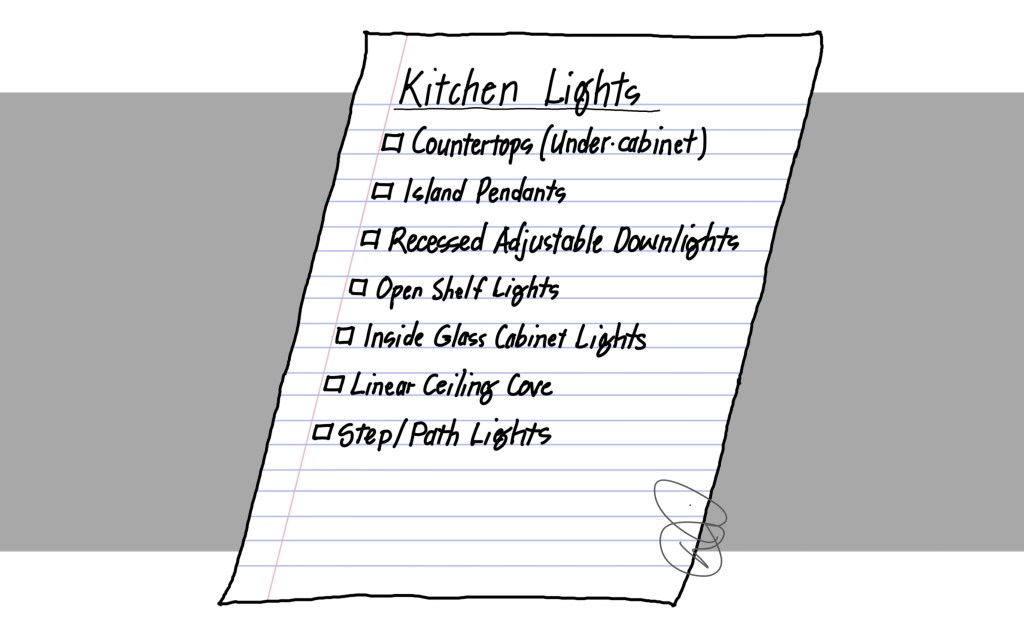 Kitchen Lights
Countertops (Under-cabinet)
Island Pendants
Recessed Adjustable Downlights
Open Shelf Lights
Inside Glass Cabinet Lights
Linear Ceiling Cove
Step/Path Lights